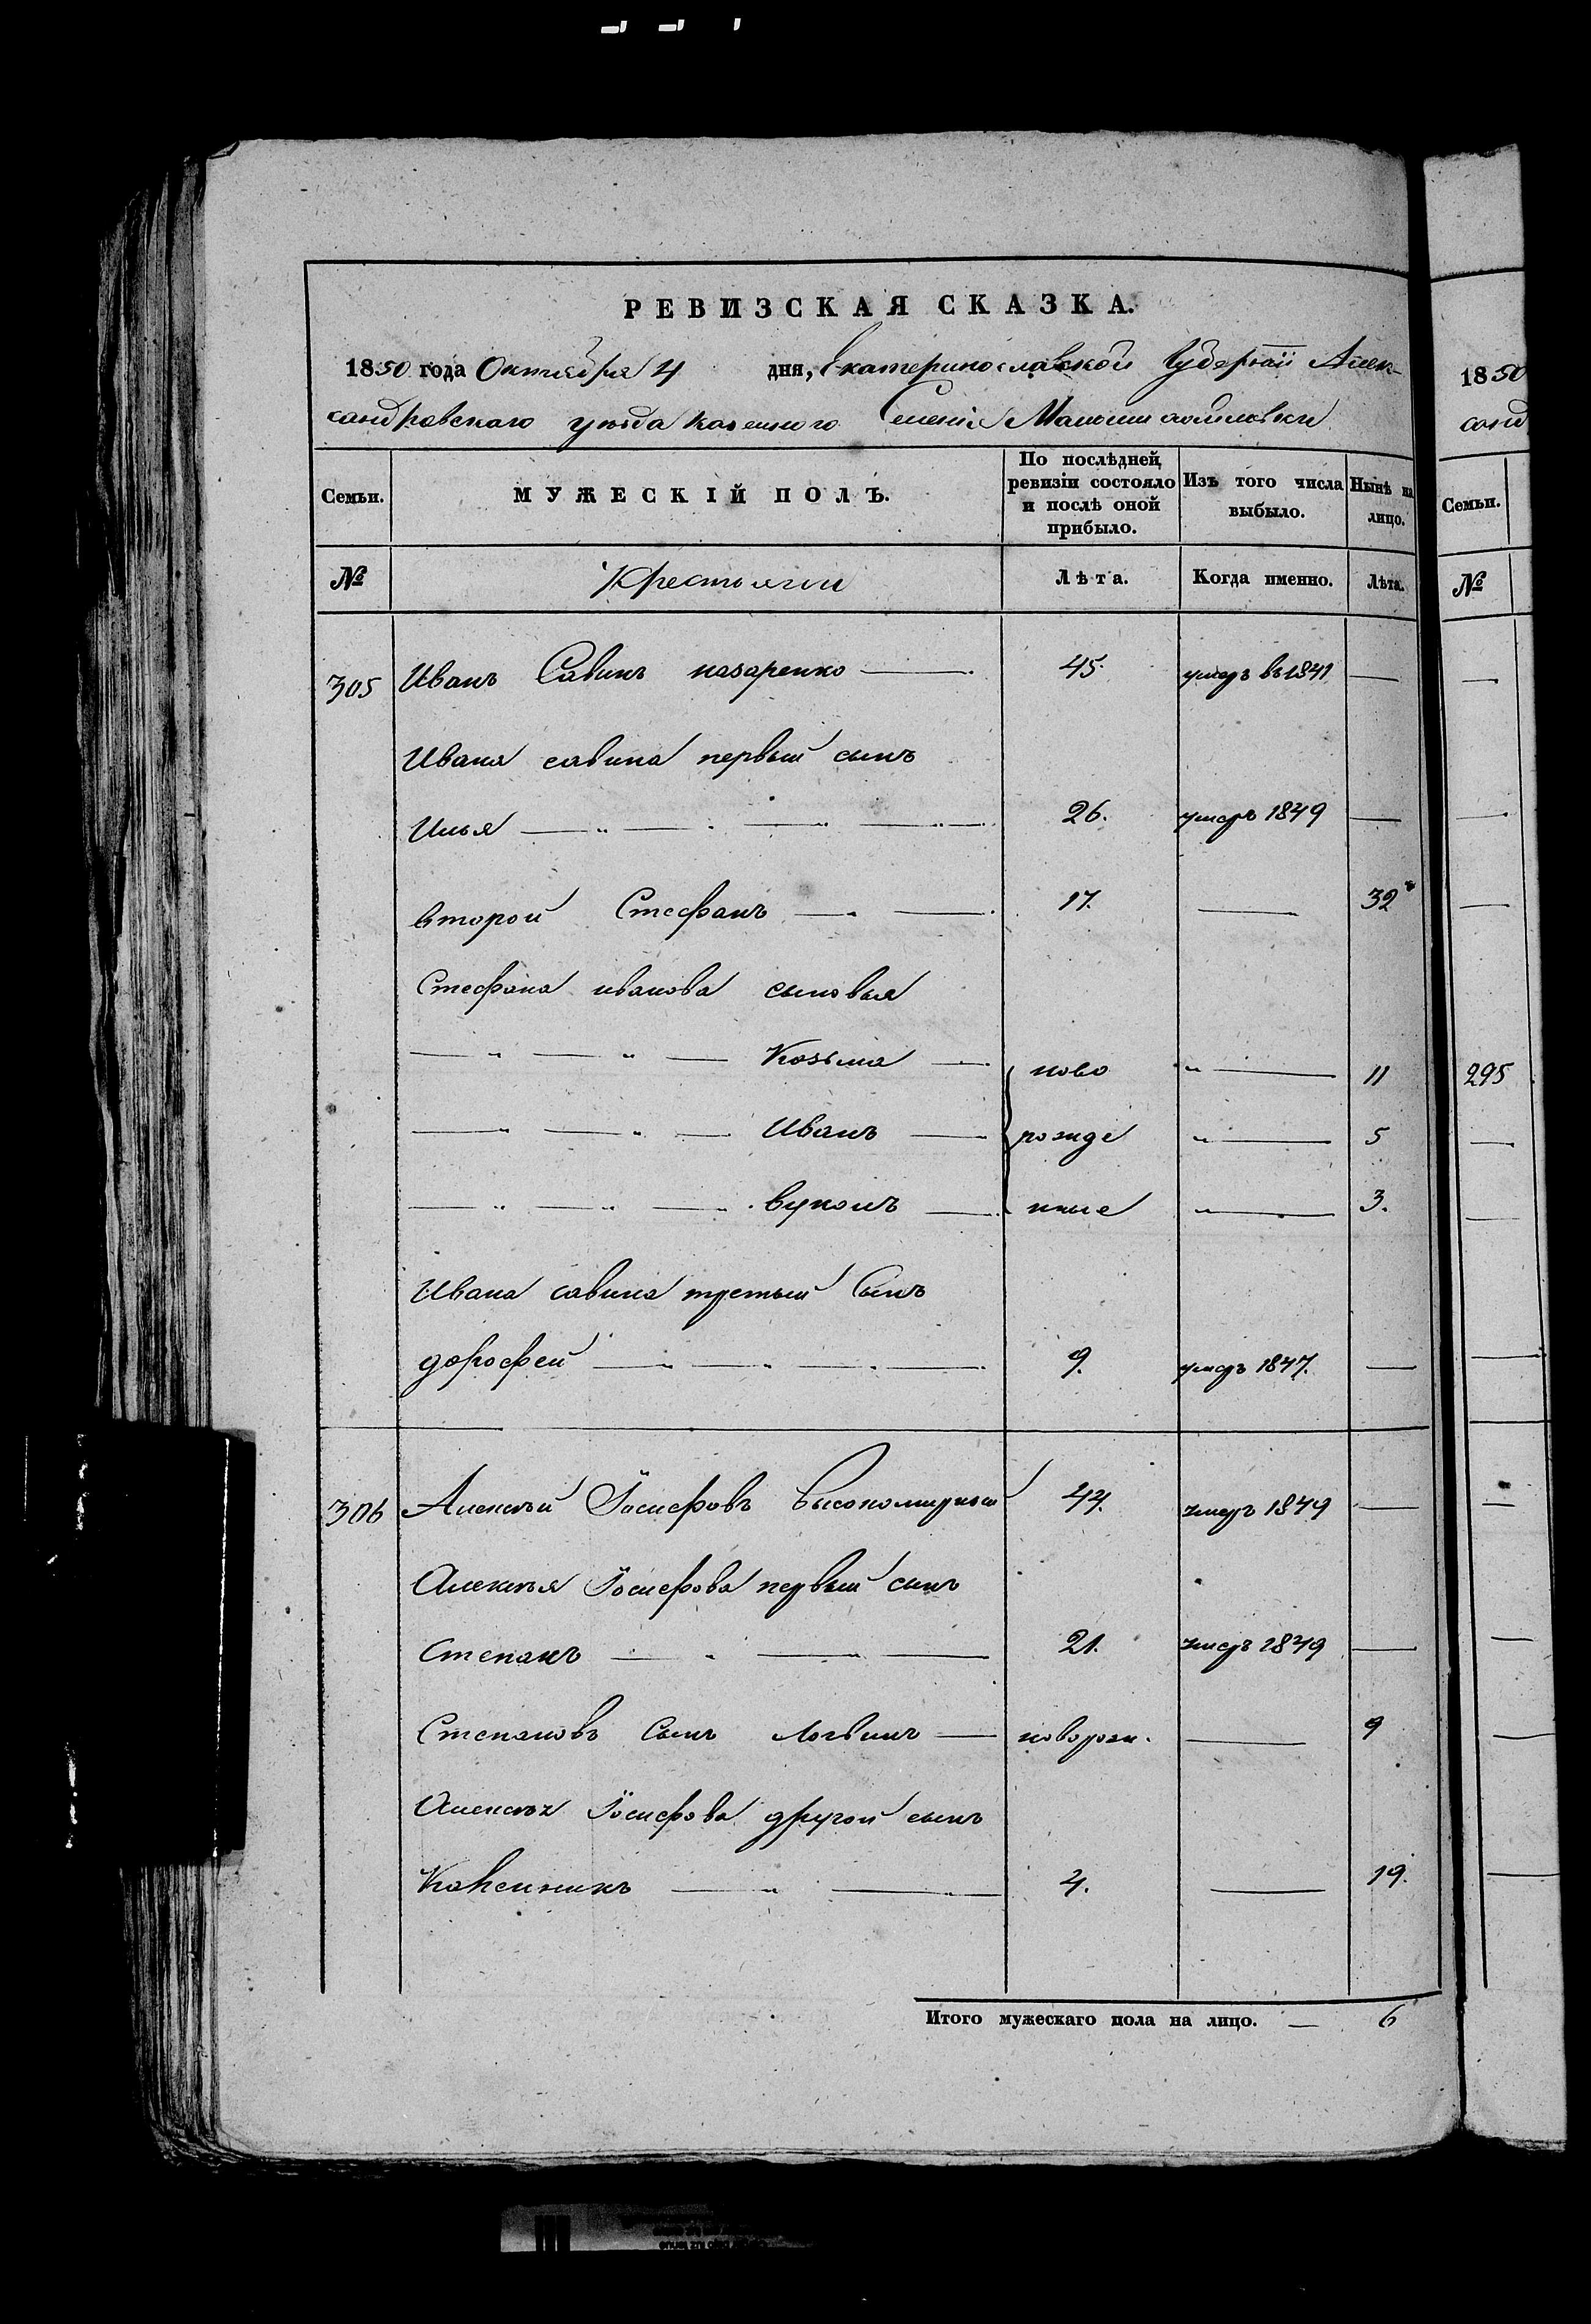 РЕВИЗСКАЯ СКАЗКА.
1850 года Октября 4 дня, Екатеринославской Губернии Алек-
сандровскаго уѣзда казенного Селенія
Семьи. МУЖЕСКІЙ ПОЛЪ. По послѣдней ревизіи состояло и послѣ оной прибыло. Изъ того числа выбыло. Нынѣ на лицо.
№ Крестьяни Лѣта. Когда именно. Лѣта.
305 Иванъ Савинъ назаренко 45. умеръ въ 1841 —
Ивана савина первый сынъ
Илья 26. умеръ 1849 —
второй Стефанъ 17. — 32
Стефана иванова сыновья
Козьма ново " — 11
Иванъ рожде " — 5
вуколъ нные " — 3.
Ивана савина третьий Сынъ
дорофей 9. умеръ 1847. —
306 Алексѣй Іосифовъ 44. умеръ 1849 —
Алексѣя Іосифова первый сынъ
Степанъ 21. умеръ 1849 —
Степановъ Сынъ Логвинъ — коворож. — 9
Алексѣя Іосифова другой сынъ
4. — 19.
Итого мужескаго пола на лицо. — 6
1850
санд
Семьи.
№
295